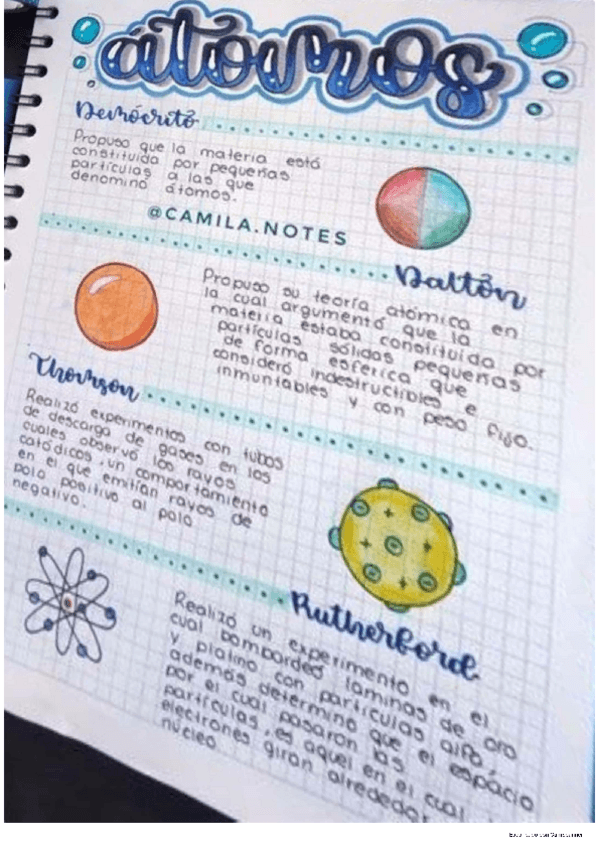 átomos
Demócrito
Propuso que la materia está
constituida por pequeñas
partículas a las que
denominó átomos.
@CAMILA.NOTES
Daltón
Propuso su teoría atómica en
la cual argumentó que la
materia estaba constituida por
partículas sólidas pequeñas
de forma esferica que
consideró indestructibles e
inmuntables y con peso fijo.
Thomson
Realizó experimentos con tubos
de descarga de gases en los
cuales observó los rayos
catódicos, un comportamiento
en el que emitían rayos de
polo positivo al polo
negativo.
Rutherford
Realizó un experimento en el
cual bombardeó laminas de oro
y platino con partículas alfa,
además determinó que el espacio
por el cual pasaron las
partículas, es aquel en el cual
electrones giran alrededor
núcleo